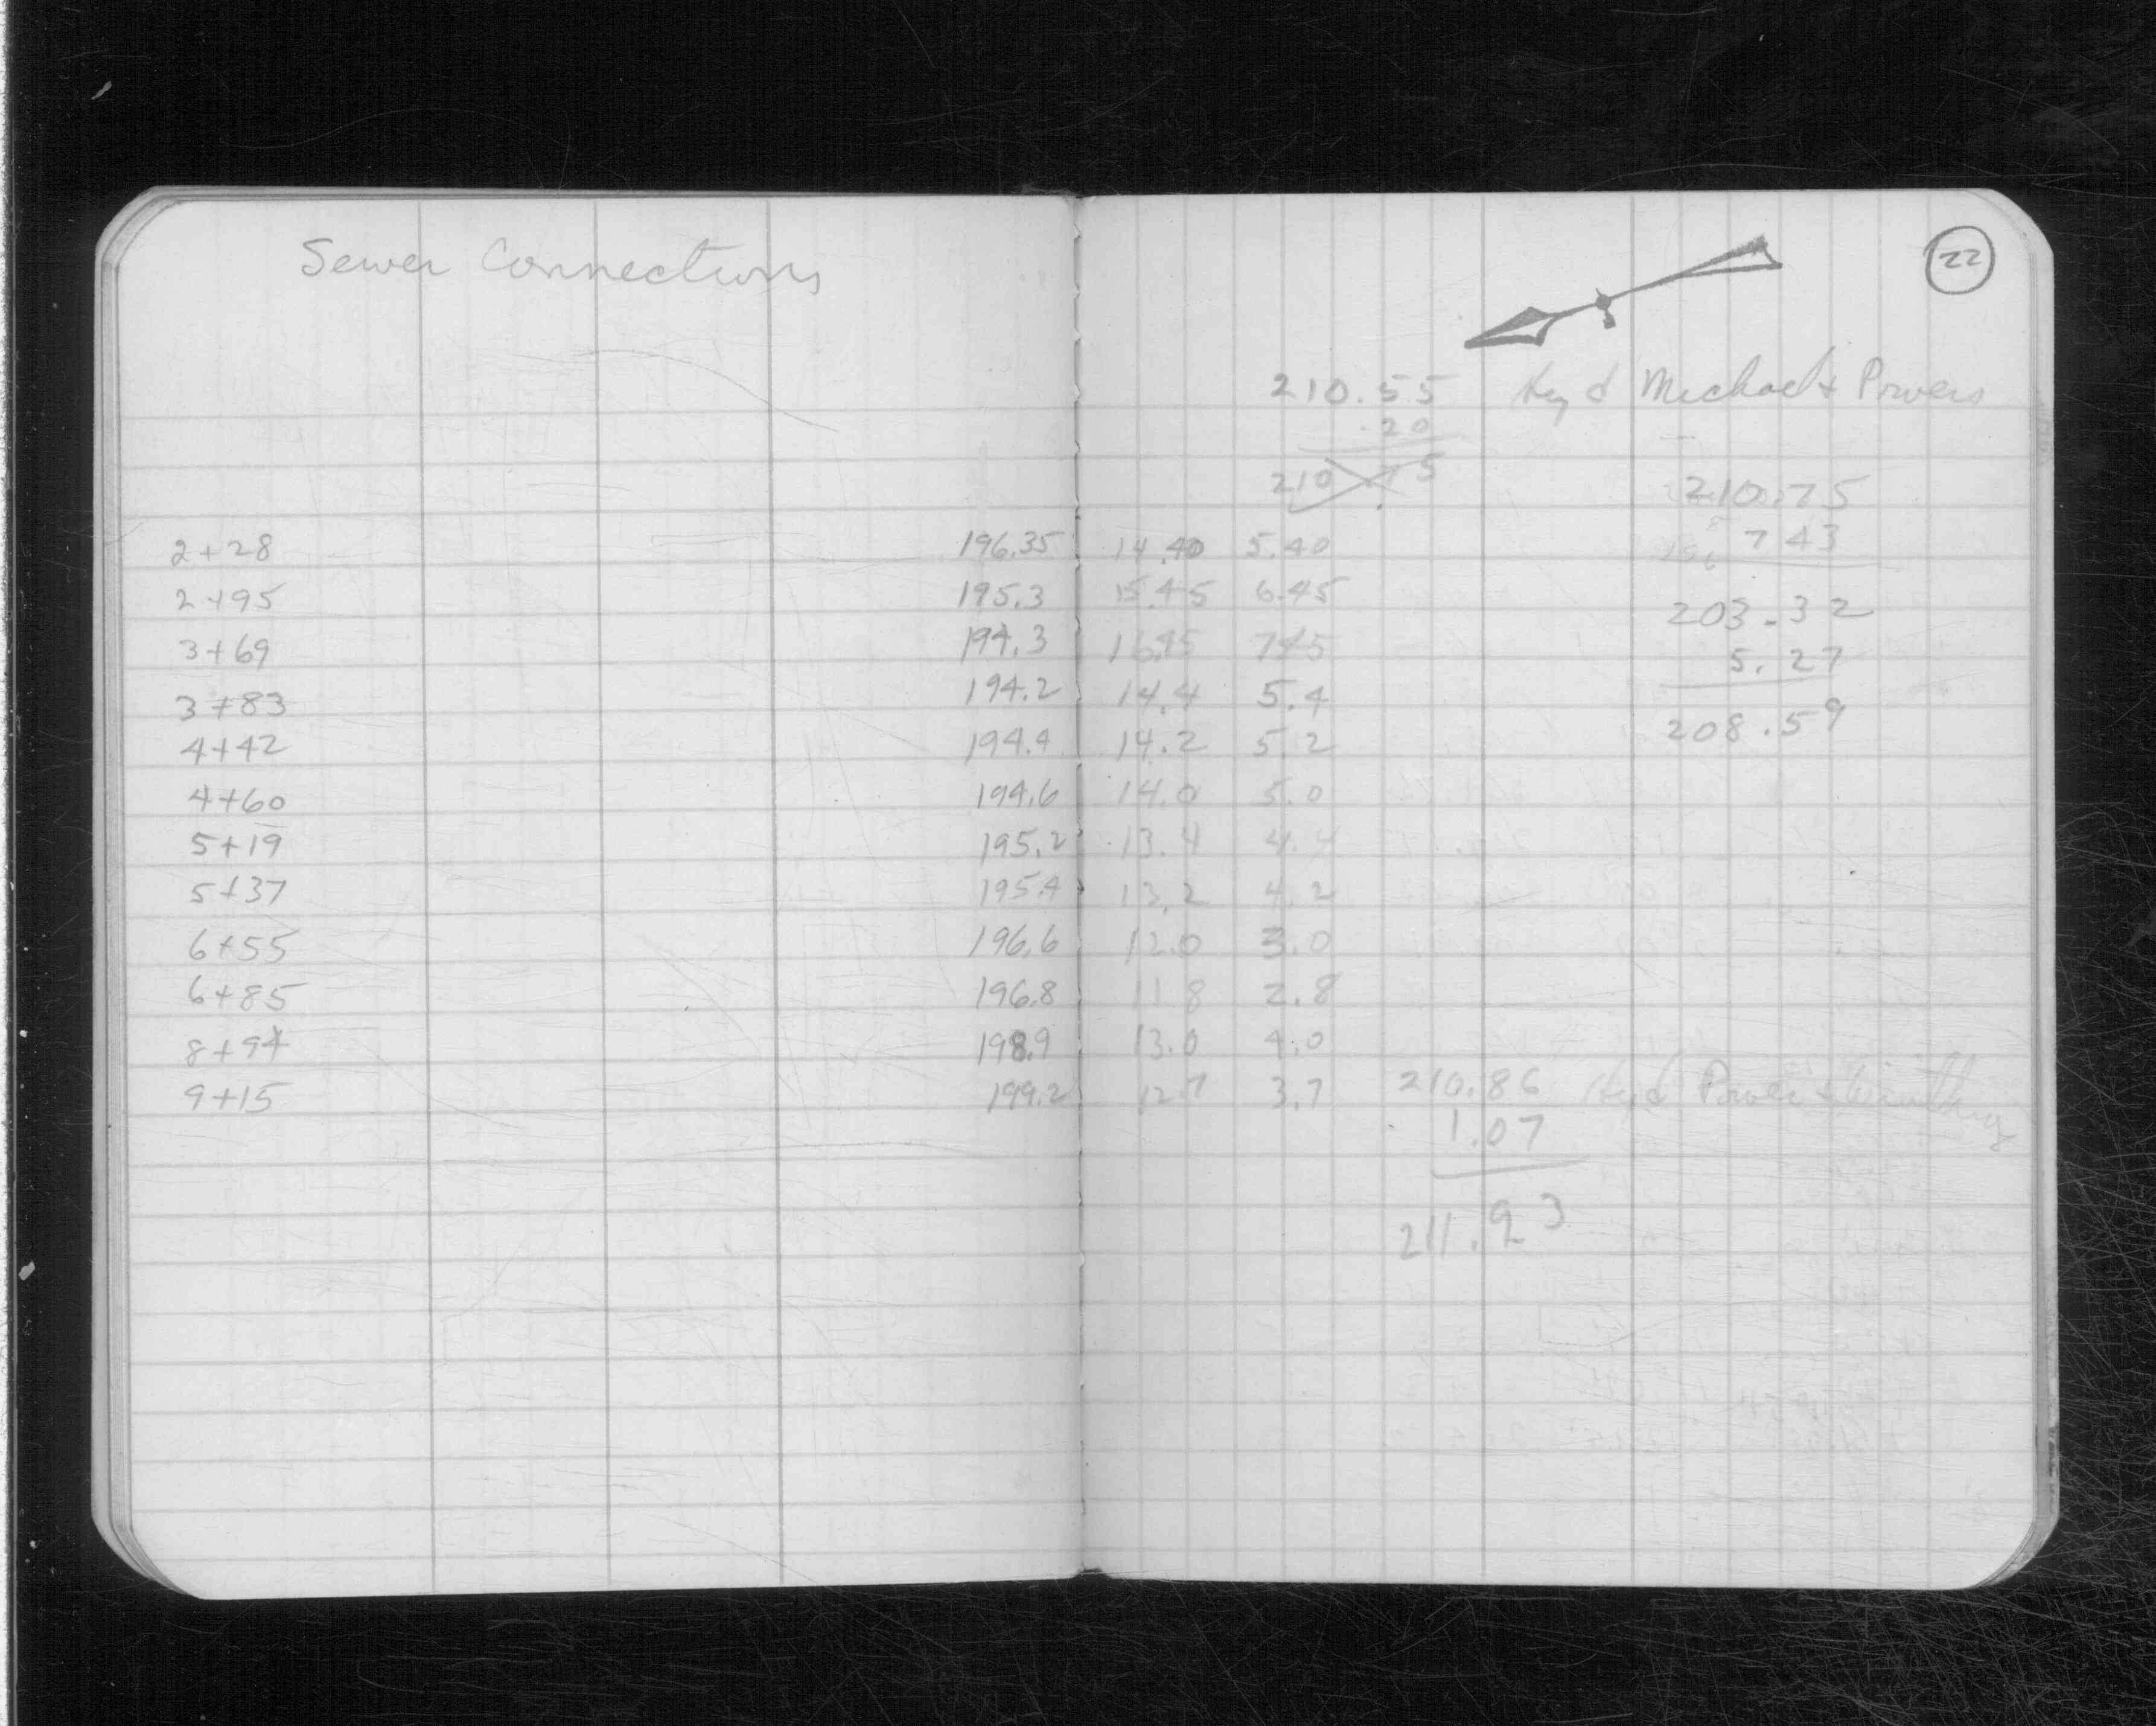 Sewer Connections
22
210.55 Hyd Michael & Powers
.20
210 . 5
210.75
7 43
203.32
5.27
208.59
2+28 196.35 14.40 5.40
2+95 195.3 15.45 6.45
3+69 194.3 16.45 745
3+83 194.2 14.4 5.4
4+42 194.4 14.2 5 2
4+60 194.6 14.0 5.0
5+19 195.2 13.4 4.4
5+37 195.4 13.2 4.2
6+55 196.6 12.0 3.0
6+85 196.8 11 8 2.8
8+94 198.9 13.0 4.0
9+15 199.2 12.7 3.7
210.86 Hyd Power & Winthrop
1.07
211.93